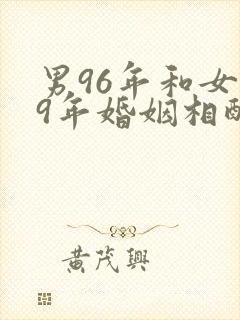 男96年和女
9年婚姻相
黄茂興